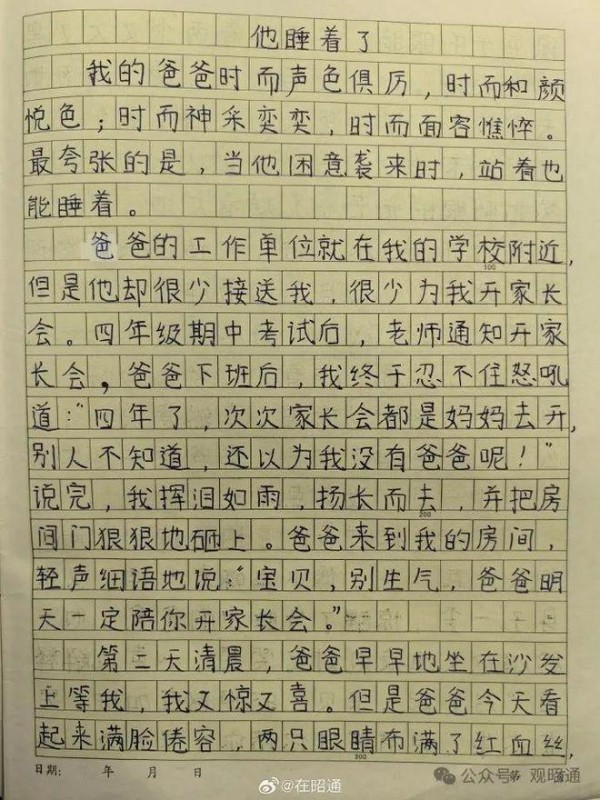 他睡着了
我的爸爸时而声色俱厉，时而和颜
悦色；时而神采奕奕，时而面容憔悴。
最夸张的是，当他困意袭来时，站着也
能睡着。
爸爸的工作单位就在我的学校附近，
100
但是他却很少接送我，很少为我开家长
会。四年级期中考试后，老师通知开家
长会，爸爸下班后，我终于忍不住怒吼
道：“四年了，次次家长会都是妈妈去开，
别人不知道，还以为我没有爸爸呢！”
说完，我挥泪如雨，扬长而去，并把房
200
间门狠狠地砸上。爸爸来到我的房间，
轻声细语地说：“宝贝，别生气，爸爸明
天一定陪你开家长会。”
第二天清晨，爸爸早早地坐在沙发
上等我，我又惊又喜。但是爸爸今天看
起来满脸倦容，两只眼睛布满了红血丝，
300
日期： 年 月 日
@在昭通
公众号 观昭通